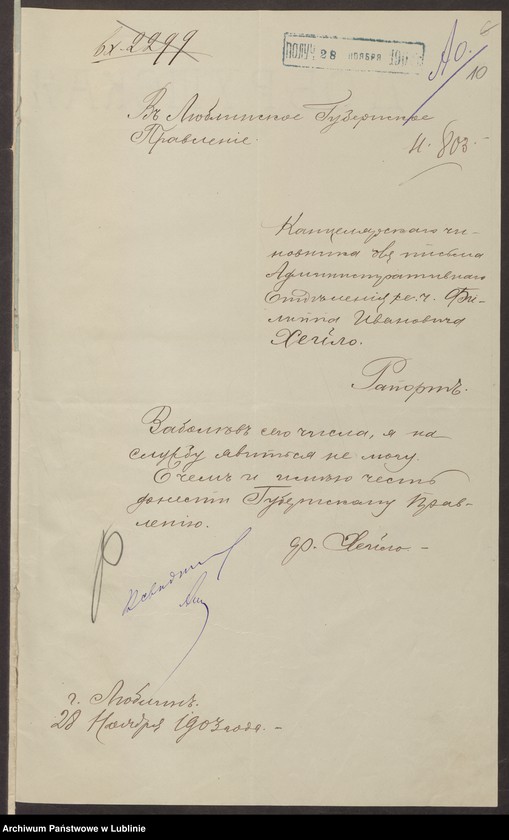 вх. 2299
ПОЛУЧ 28 НОЯБРЯ
АО/10
Въ Люблинское Губернское
Правленіе.
И. 803.
Канцелярскаго чи-
новника для письма
Административнаго
Отдѣленія ре. ч. Фи-
липпа Ивановича
Хейло.
Рапортъ.
Заболѣвъ сего числа, я на
службу явиться не могу.
О чемъ и имѣю честь
донести Губернскому Прав-
ленію.
Ф. Хейло
г. Люблинъ.
28 Ноября 1903 года.
Archiwum Państwowe w Lublinie